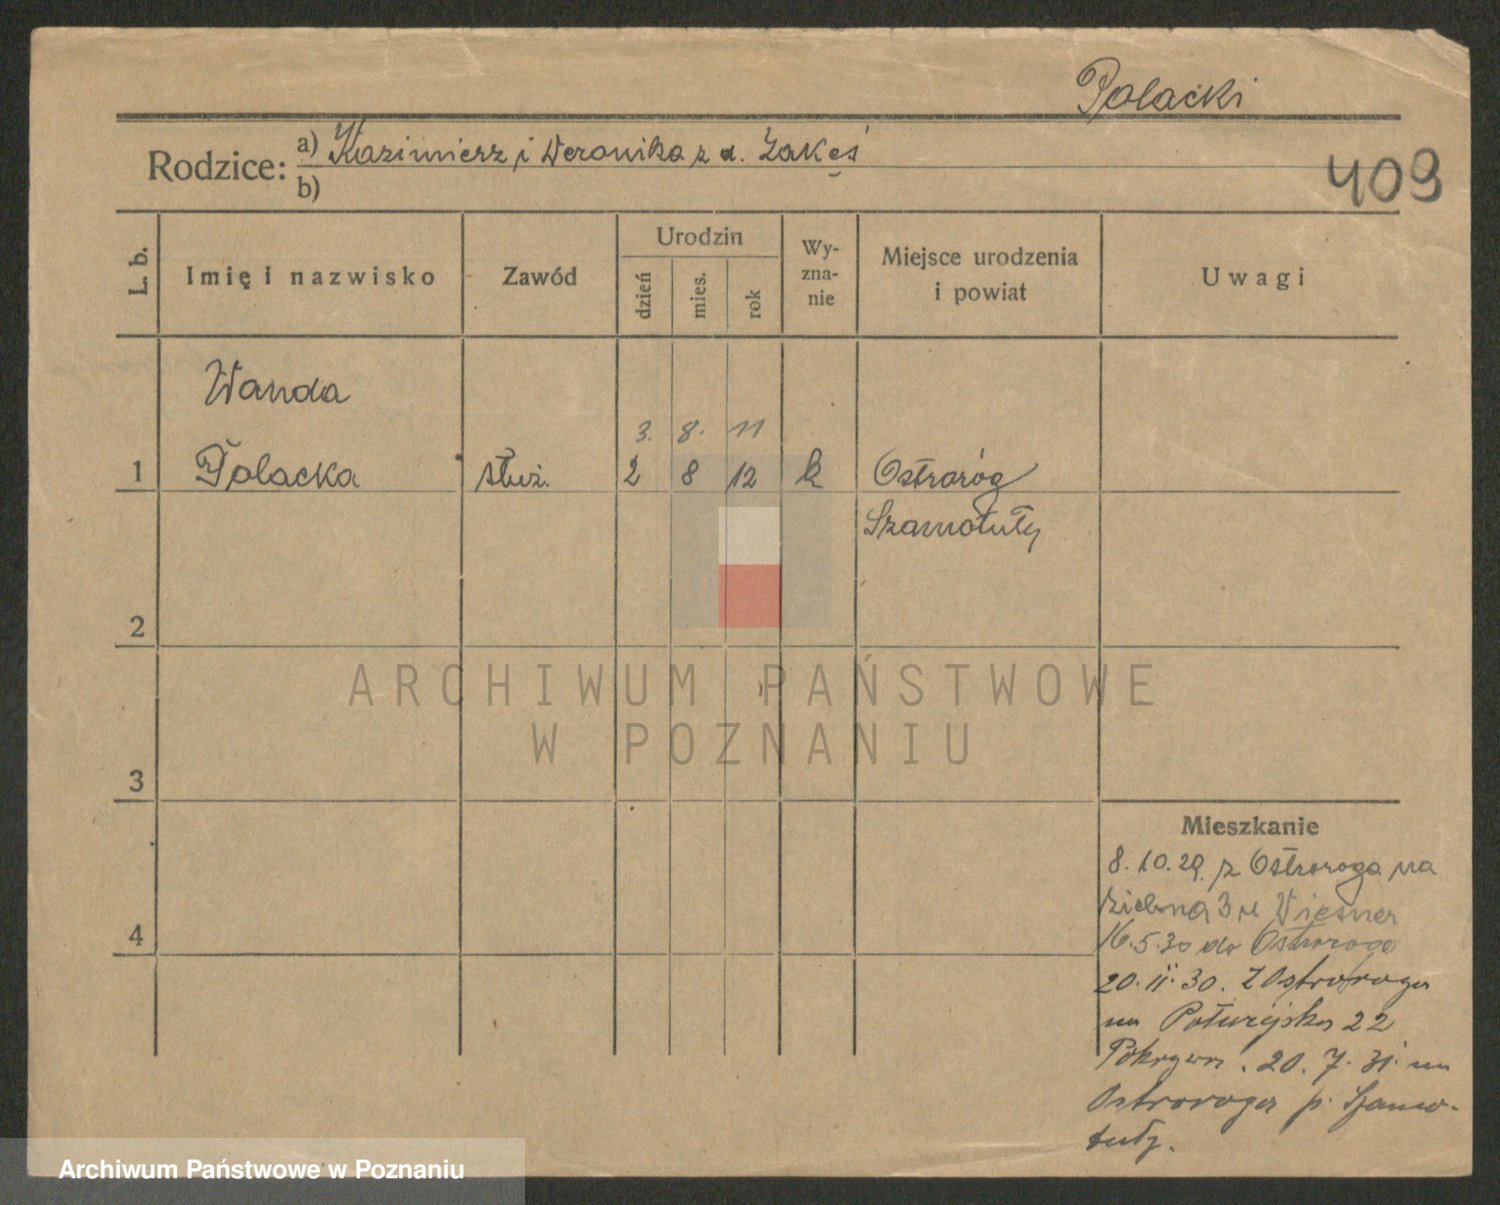 Polacki
Rodzice: a) Kazimierz i Weronika z d. Żakęś
b)
409
L. b.
Imię i nazwisko
Zawód
Urodzin
dzień
mies.
rok
Wy-
zna-
nie
Miejsce urodzenia
i powiat
Uwagi
Wanda
3. 8. 11
1 Polacka służ. 2 8 12 k Ostroróg
Szamotuły
2
ARCHIWUM PAŃSTWOWE
W POZNANIU
3
Mieszkanie
8.10.29. z Ostroroga na
3 u Wiesner
4
16.5.30 do Ostroroga
20.11.30. z Ostroroga
na 22
20.7.31. na
Ostroroga p. Szamo-
tuły.
Archiwum Państwowe w Poznaniu